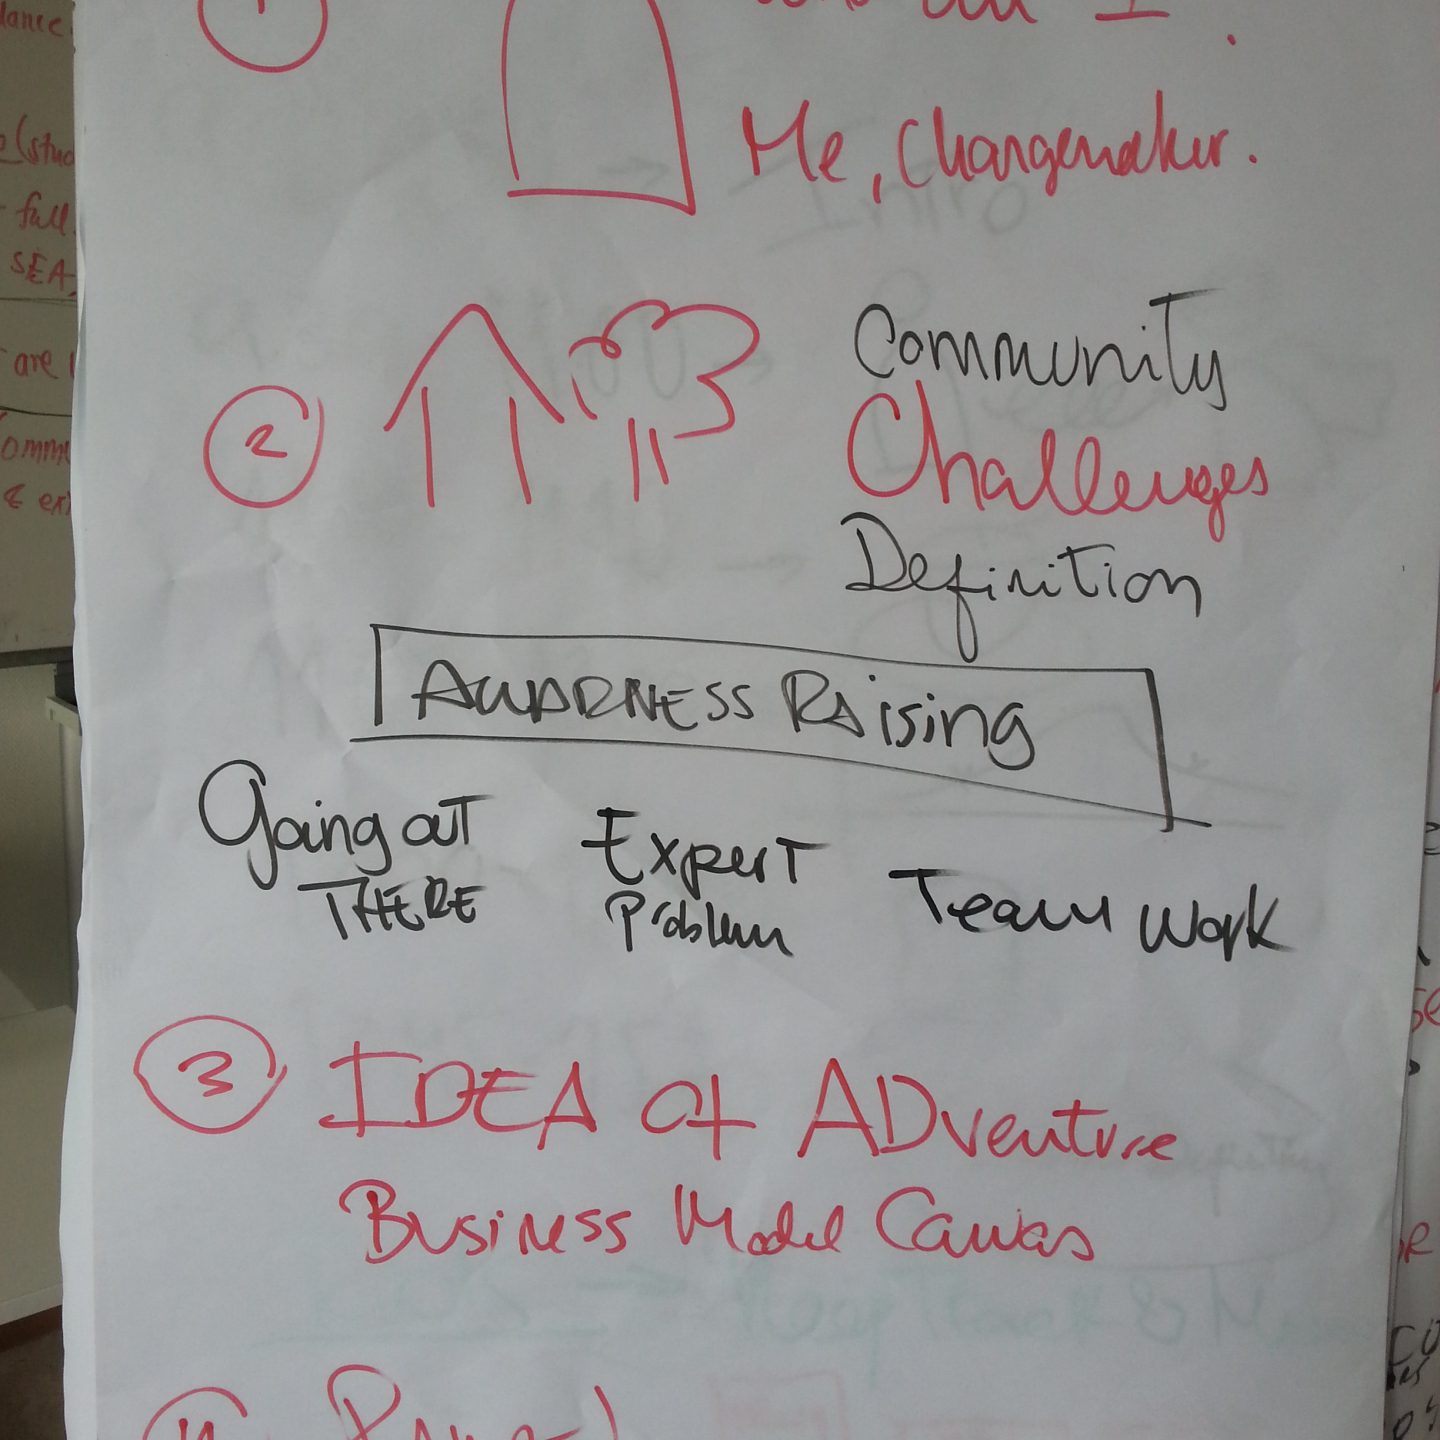 1
I.
Me, Changemaker.
2
Community
Challenges
Definition
AWARNESS Raising
Going out
THERE
Expert
Problem
Team work
3 IDEA of ADventure
Business Model Canvas
are
SEA,
full